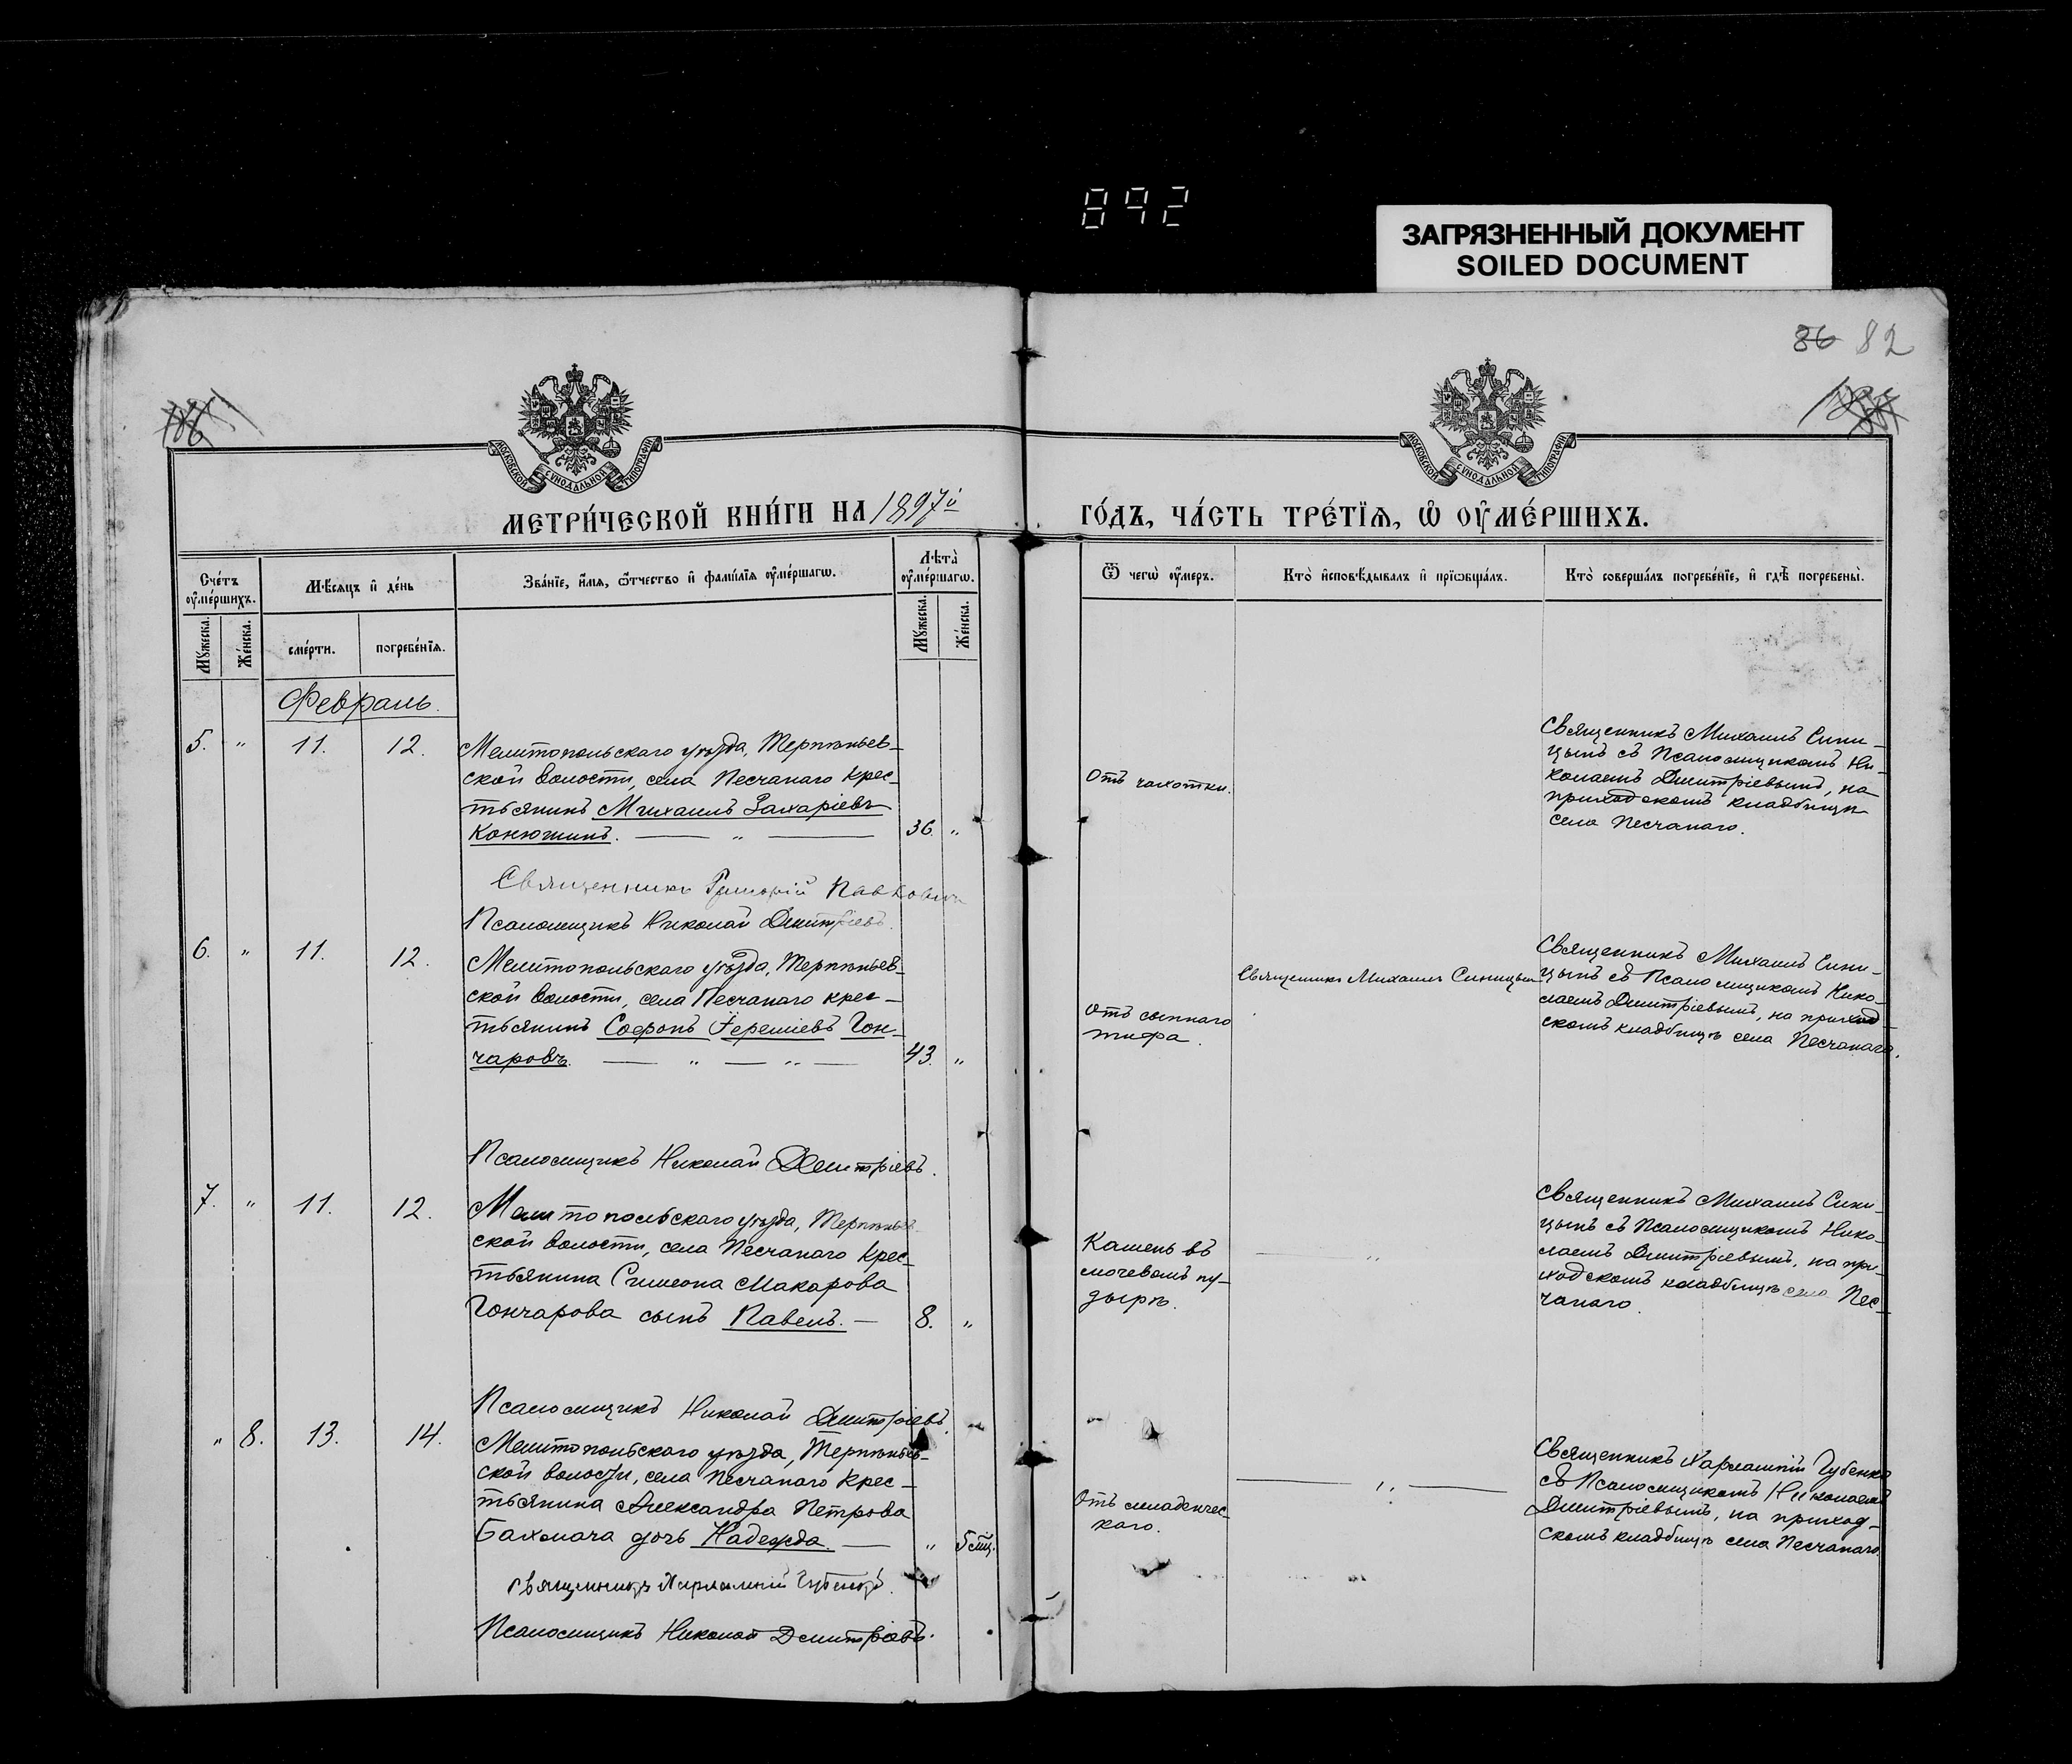 892
ЗАГРЯЗНЕННЫЙ ДОКУМЕНТ
SOILED DOCUMENT
86 82
МОСКОВСКОЙ СУНОДАЛЬНОЙ ТИПОГРАФІИ
МОСКОВСКОЙ СУНОДАЛЬНОЙ ТИПОГРАФІИ
МЕТРИ́ЧЕСКОЙ КНИ́ГИ НА 1897й
ГО́ДЪ, ЧА́СТЬ ТРЕ́ТЇѦ, Ѡ҆ ОУ҆МЕ́РШИХЪ.
Сче́тъ оу҆ме́ршихъ.
Мѣ́сѧцъ и҆ де́нь
Зва́нїе, и҆́мѧ, ѻ҆́тчество и҆ фами́лїѧ оу҆ме́ршагѡ.
Лѣ́та оу҆ме́ршагѡ.
Ѿ чегѡ̀ оу҆́меръ.
Кто̀ и҆сповѣ́дывалъ и҆ прїѡбща́лъ.
Кто̀ соверша́лъ погребе́нїе, и҆ гдѣ̀ погребены̀.
Мꙋ́жеска.
Же́нска.
сме́рти.
погребе́нїѧ.
Мꙋ́жеска.
Же́нска.
Февраль.
5. " 11. 12.
Мелитопольскаго уѣзда, Терпѣньев-
ской волости, села Песчанаго крес-
тьянинъ Михаилъ Захаріевъ
Конюшинъ. — " — 36 "
Отъ чахотки.
Священникъ Михаилъ Сини-
цынъ съ Псаломщикомъ Ни-
колаемъ Дмитріевымъ, на
приходскомъ кладбищѣ
села Песчанаго.
Священникъ Григорій
Псаломщикъ Николай Дмитріевъ.
6. " 11. 12.
Мелитопольскаго уѣзда, Терпѣньев-
ской волости, села Песчанаго крес-
тьянинъ Софронъ Іереміевъ Гон-
чаровъ. — " — " — 43. "
Отъ сыпнаго
тифа.
Священникъ Михаилъ Синицын
Священникъ Михаилъ Сини-
цынъ съ Псаломщикомъ Нико-
лаемъ Дмитріевымъ, на приход-
скомъ кладбищѣ села Песчанаго.
Псаломщикъ Николай Дмитріевъ.
7. " 11. 12.
Мелитопольскаго уѣзда, Терпѣньев-
ской волости, села Песчанаго крес-
тьянина Симеона Макарова
Гончарова сынъ Павелъ. — 8. "
Камень въ
мочевомъ пу-
зырѣ.
— "
Священникъ Михаилъ Сини-
цынъ съ Псаломщикомъ Нико-
лаемъ Дмитріевымъ, на при-
ходскомъ кладбищѣ села Пес-
чанаго.
Псаломщикъ Николай Дмитріевъ.
" 8. 13. 14.
Мелитопольскаго уѣзда, Терпѣньев-
ской волости, села Песчанаго крес-
тьянина Александра Петрова
Бахмача дочь Надежда. — " 5 мц.
Отъ младенчес-
каго.
— " —
Священникъ Харлампій Губенко
съ Псаломщикомъ Николаемъ
Дмитріевымъ, на приход-
скомъ кладбищѣ села Песчанаго.
Священникъ Харлампій Губенко.
Псаломщикъ Николай Дмитріевъ.